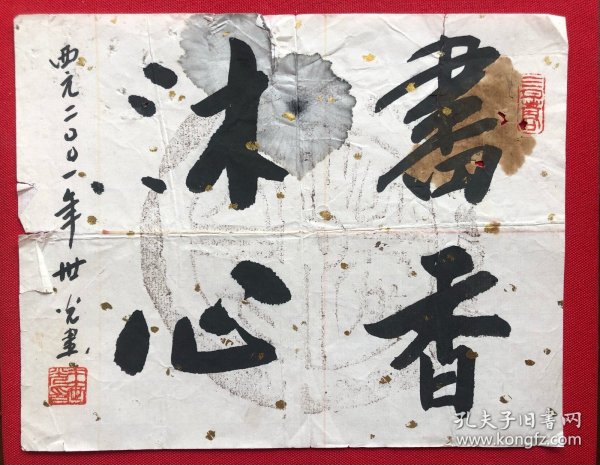 書香
沐心
西元二〇〇一年世光書
孔夫子旧书网
www.kongfz.com